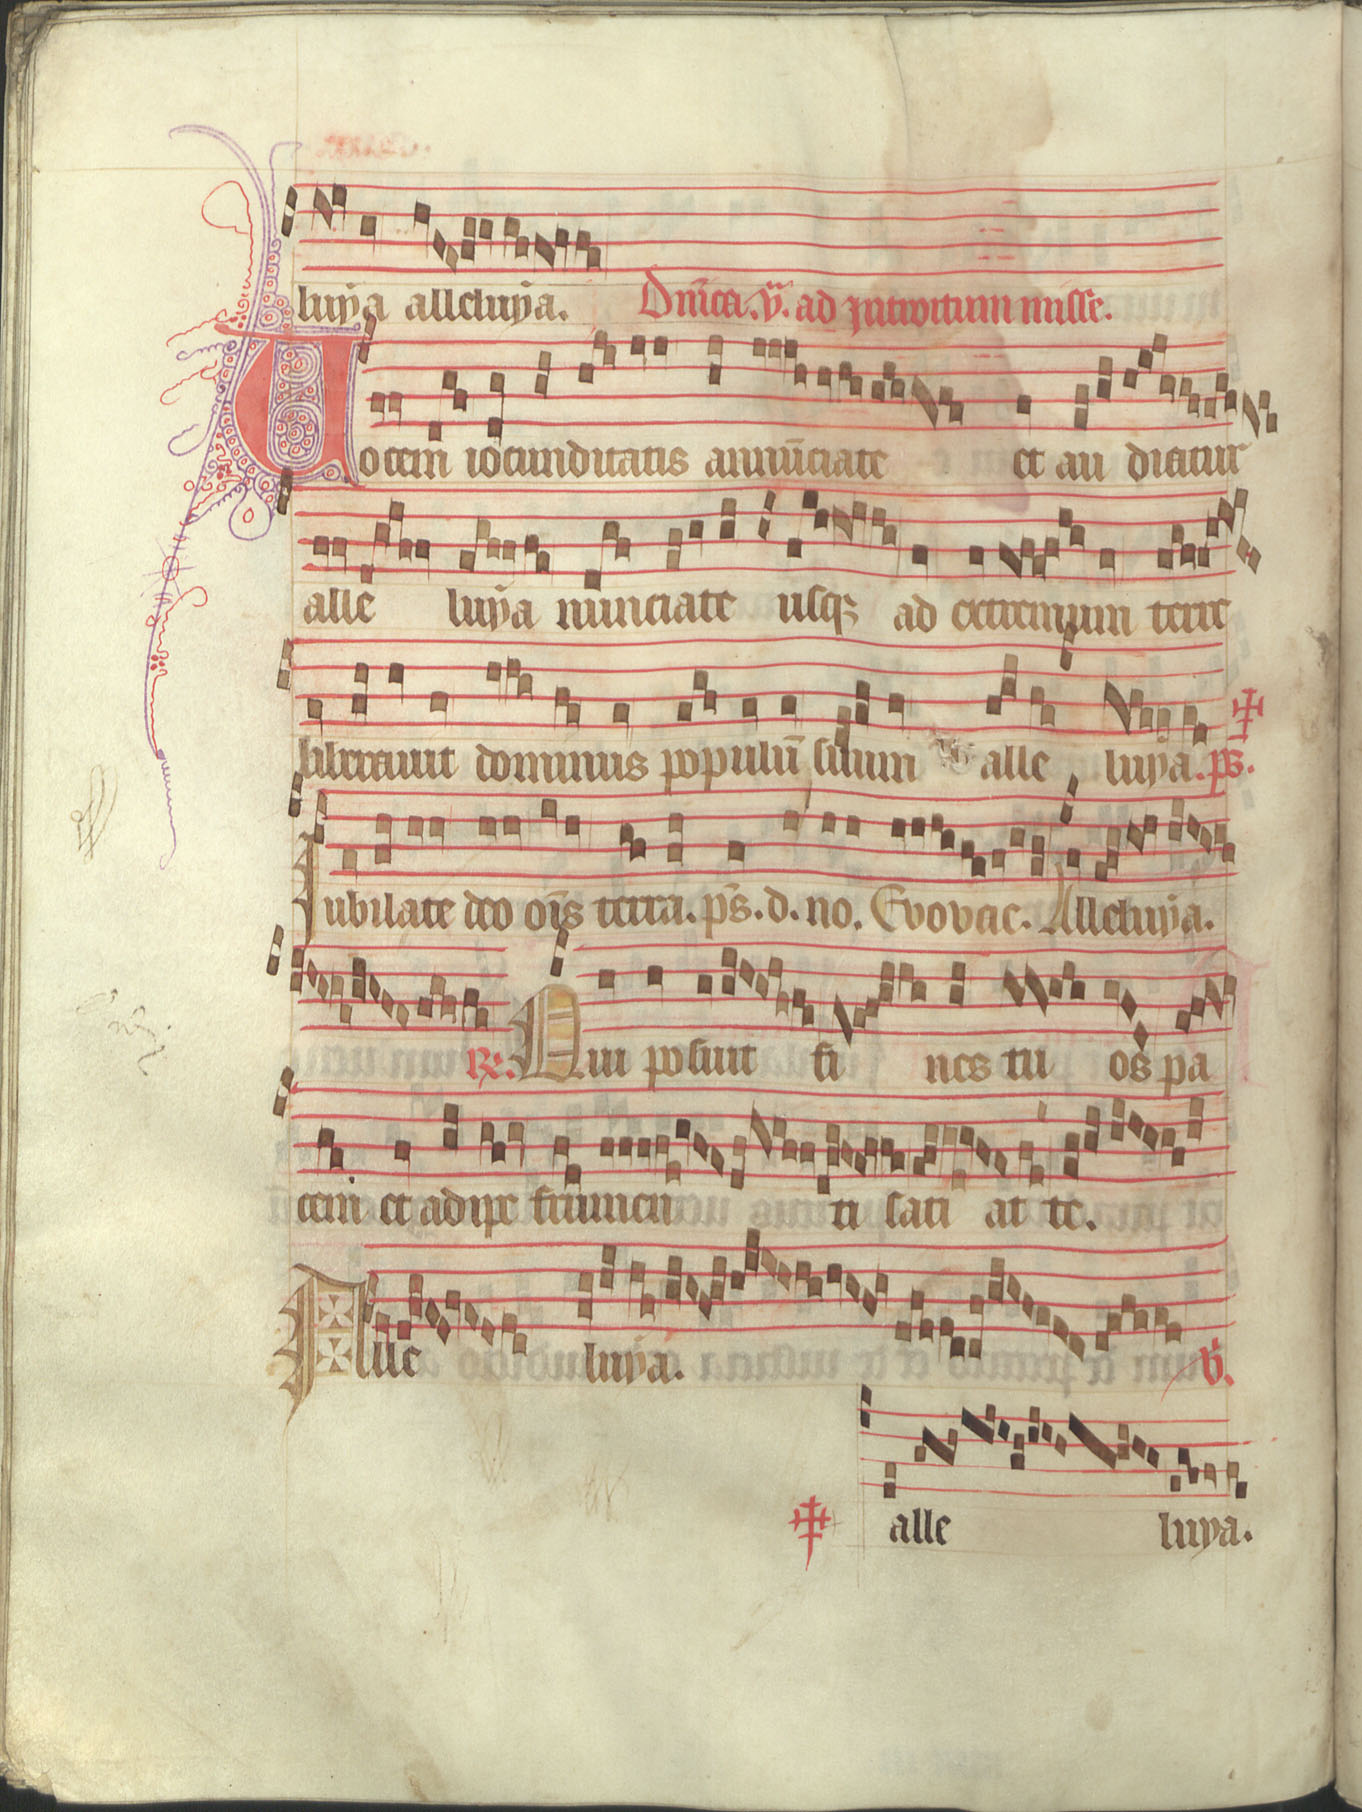 luÿa alleluÿa. Dn̄ica. v̄. ad introitum misse.
Uocem iocunditatis annūciate et au diatur
alle luÿa nunciate usq; ad extremum terre
liberauit dominus populū suum alle luÿa. ps̄.
Jubilate deo oīs terra. ps̄. d. no. Evovae. Alleluÿa.
℞. Qui posuit fi nes tu os pa
cem et adipe frumen ti sati at te.
Alle luÿa. ℣.
alle luya.